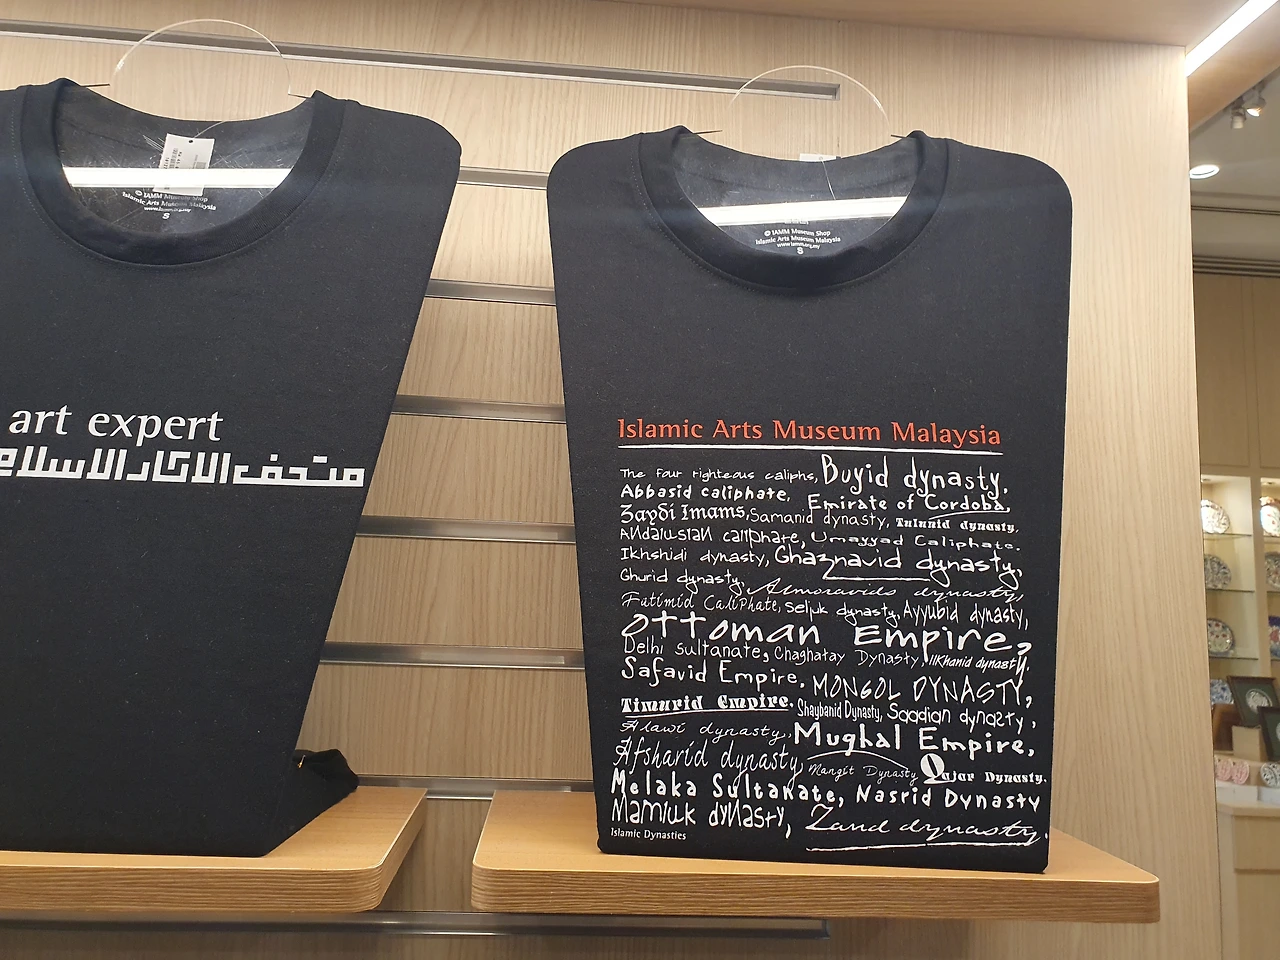 © IAMM Museum Shop
Islamic Arts Museum Malaysia
www.iamm.org.my
S
art expert
متحف الاثار الاسلام
© IAMM Museum Shop
Islamic Arts Museum Malaysia
www.iamm.org.my
S
Islamic Arts Museum Malaysia
The four righteous caliphs, Buyid dynasty,
Abbasid caliphate, Emirate of Cordoba,
Zaydi Imams, Samanid dynasty, Tulunid dynasty,
Andalusian caliphate, Umayyad Caliphate,
Ikhshidi dynasty, Ghaznavid dynasty,
Ghurid dynasty, Almoravids dynasty,
Fatimid Caliphate, Seljuk dynasty, Ayyubid dynasty,
Ottoman Empire,
Delhi sultanate, Chaghatay Dynasty, IlKhanid dynasty,
Safavid Empire, MONGOL DYNASTY,
Timurid Empire, Shaybanid Dynasty, Saadian dynasty,
Alawi dynasty, Mughal Empire,
Afsharid dynasty, Mangit Dynasty, Qajar Dynasty,
Melaka Sultanate, Nasrid Dynasty
Mamluk dynasty, Zand dynasty.
Islamic Dynasties